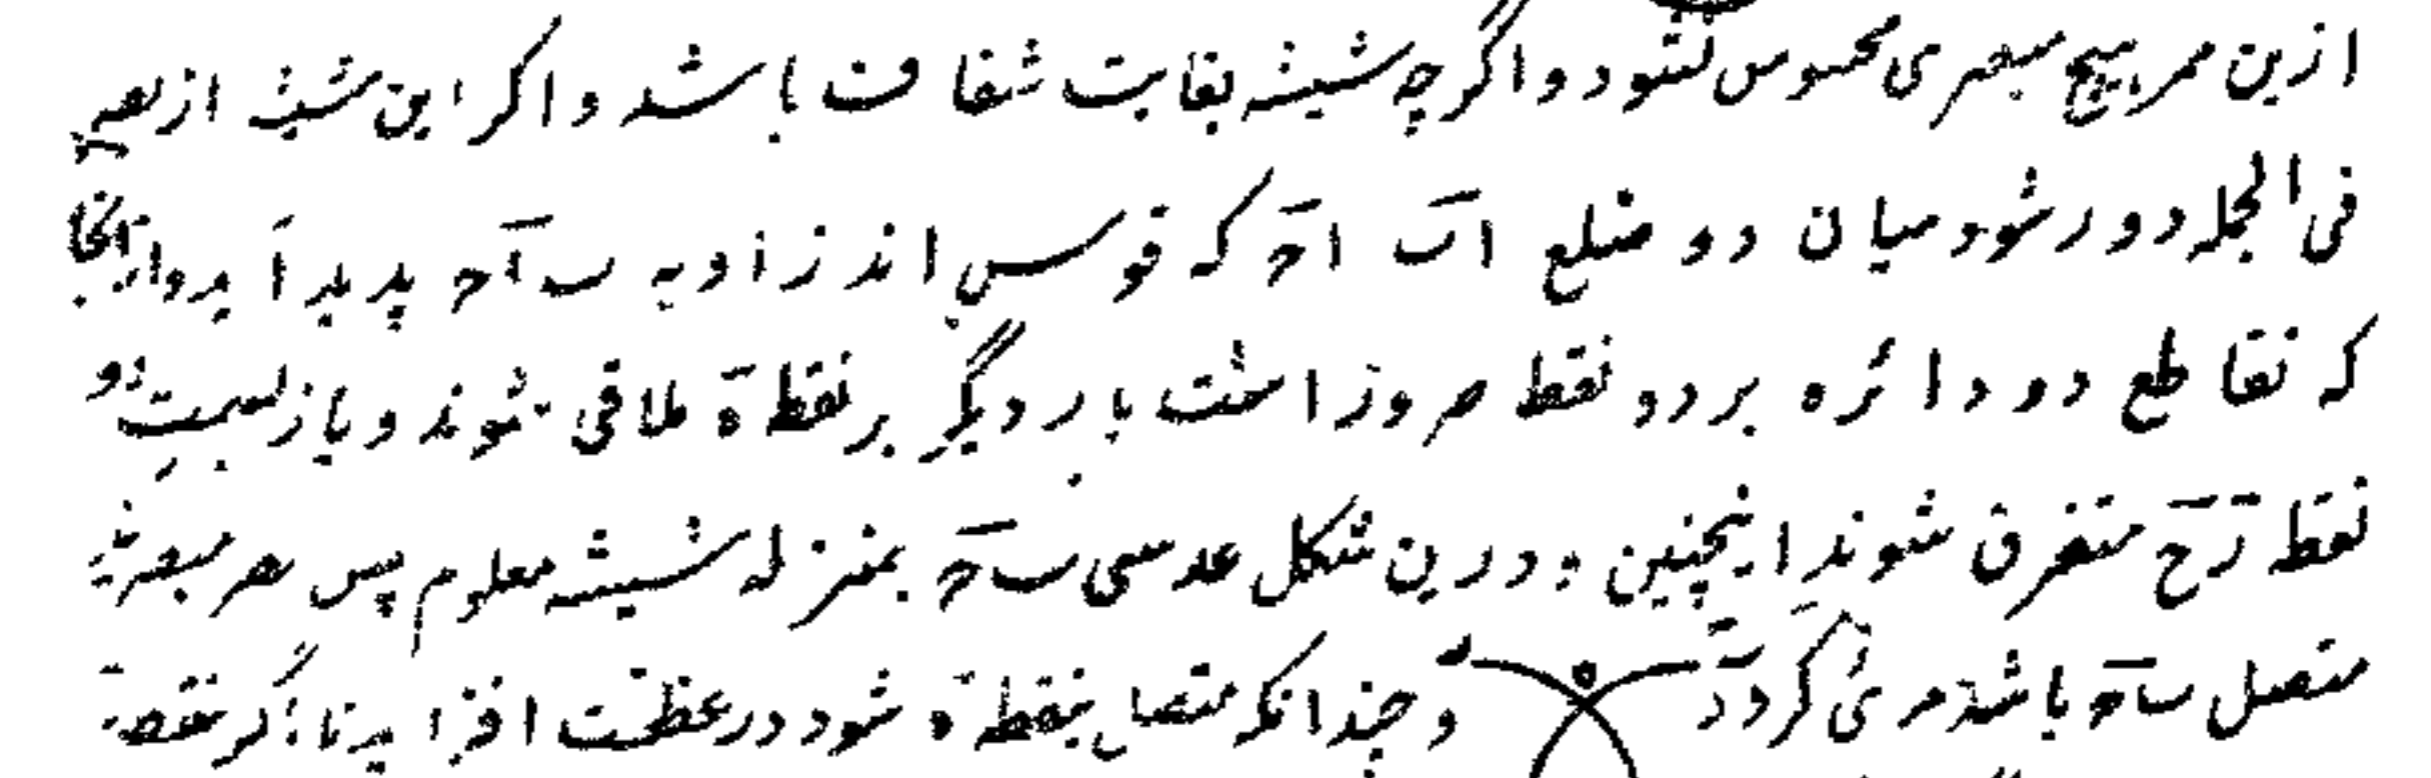 ازین ممر هیچ مبصری محسوس نشود و اگرچه شیشه بغایت شفاف باشد و اگر این شیشه از بصر
فی الجمله دور شود میان دو ضلع اب اح که قوس اند زاویه ب اح پدید آید و از آنجا
که تقاطع دو دائره بر دو نقطه روز است بار دیگر بر نقطه ه ملاقی شوند و باز بسمت دو
نقطه رح متفرق شوند اینچنین و درین شکل عدسی ب ح بمنزله شیشه معلوم پس هر مبصریکه
متصل ب ح باشد مرئی گردد و چندانکه متصل بنقطه ه شود در عظمت افزاید تا اگر نقطه